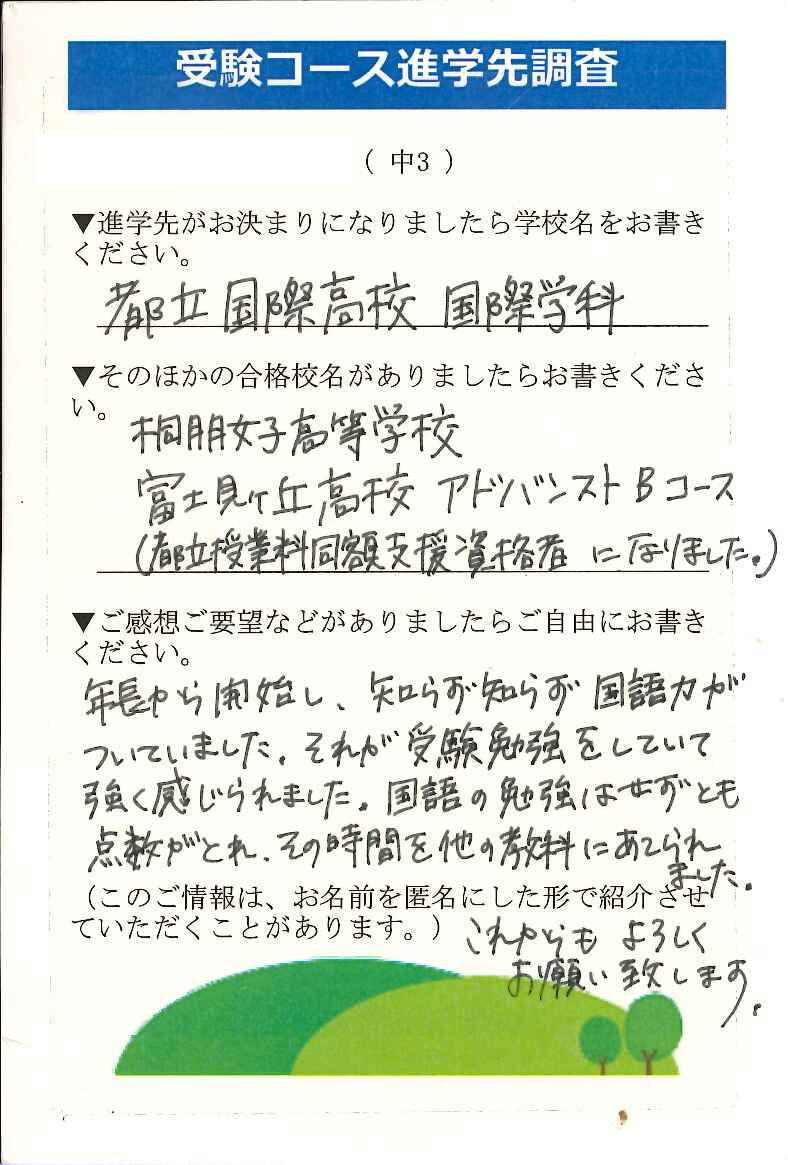 受験コース進学先調査
（ 中3 ）
▼進学先がお決まりになりましたら学校名をお書き
ください。
都立国際高校 国際学科
▼そのほかの合格校名がありましたらお書きくださ
い。
桐朋女子高等学校
富士見ヶ丘高校 アドバンストBコース
(都立授業料同額支援資格者 になりました。)
▼ご感想ご要望などがありましたらご自由にお書き
ください。
年長から開始し、知らず知らず国語力が
ついていました。それが受験勉強をしていて
強く感じられました。国語の勉強はせずとも
点数がとれ、その時間を他の教科にあてられ
ました。
（このご情報は、お名前を匿名にした形で紹介させ
ていただくことがあります。）
これからも よろしく
お願い致します。